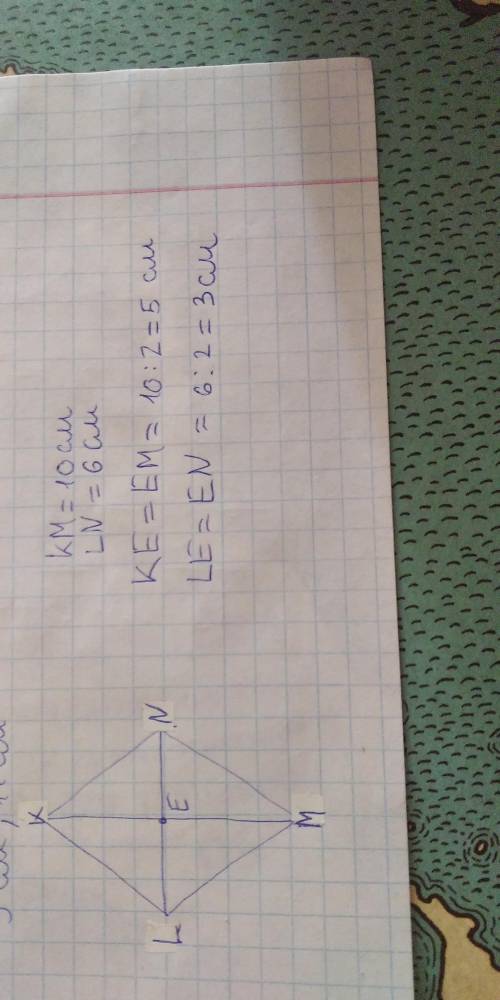 KM = 10 см
LN = 6 см
KE = EM = 10 : 2 = 5 см
LE = EN = 6 : 2 = 3 см
K
L
E
N
M